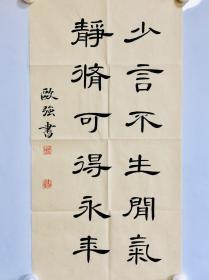 少言不生閒氣
靜脩可得永年
歐強書